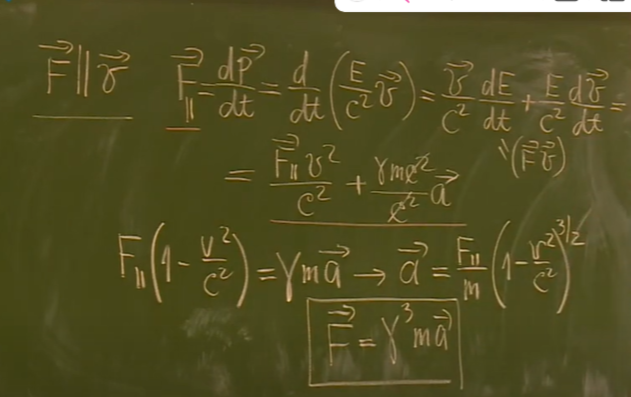 F⃗ ∥ v⃗   F⃗∥ = dp⃗/dt = d/dt (E/c² v⃗) = v⃗/c² dE/dt + E/c² dv⃗/dt =
"(F⃗v⃗)
= F⃗∥v²/c² + γmc²/c² a⃗
F∥(1 - v²/c²) = γma⃗ → a⃗ = F∥/m (1 - v²/c²)^3/2
F⃗ = γ³ma⃗